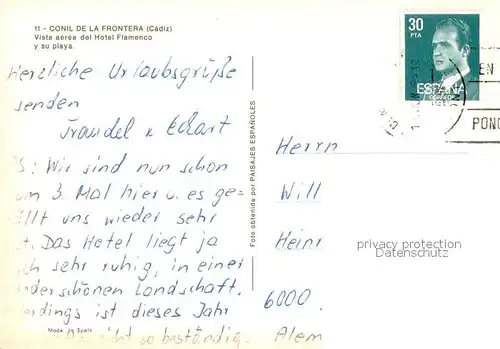 11 - CONIL DE LA FRONTERA (Cádiz)
Vista aérea del Hotel Flamenco
y su playa.
Herzliche Urlaubsgrüße
senden
Traudel u Eckart
PS: Wir sind nun schon
zum 3. Mal hier u. es ge-
fällt uns wieder sehr
gut. Das Hotel liegt ja
auch sehr ruhig, in einer
wunderschönen Landschaft.
Allerdings ist dieses Jahr
nicht so beständig.
Made in Spain
Foto obtenida por PAISAJES ESPAÑOLES
30
PTA
ESPAÑA
CORREOS
EN
PONG
Herrn
Will
Heinr
6000
Alem
privacy protection
Datenschutz